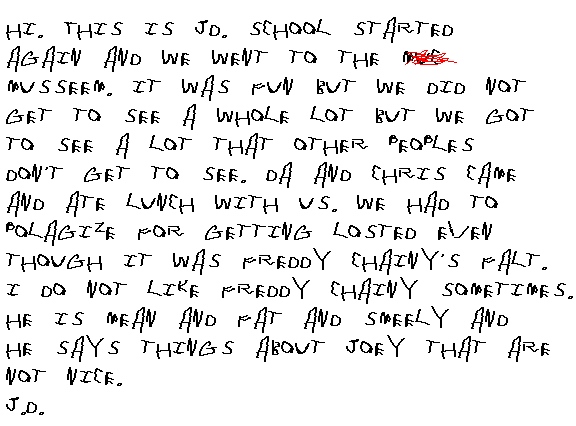 HI. THIS IS JD. SCHOOL STARTED
AGAIN AND WE WENT TO THE
MUSSEEM. IT WAS FUN BUT WE DID NOT
GET TO SEE A WHOLE LOT BUT WE GOT
TO SEE A LOT THAT OTHER PEOPLES
DON'T GET TO SEE. DA AND CHRIS CAME
AND ATE LUNCH WITH US. WE HAD TO
POLAGIZE FOR GETTING LOSTED EVEN
THOUGH IT WAS FREDDY CHAINY'S FALT.
I DO NOT LIKE FREDDY CHAINY SOMETIMES.
HE IS MEAN AND FAT AND SMEELY AND
HE SAYS THINGS ABOUT JOEY THAT ARE
NOT NICE.
J.D.